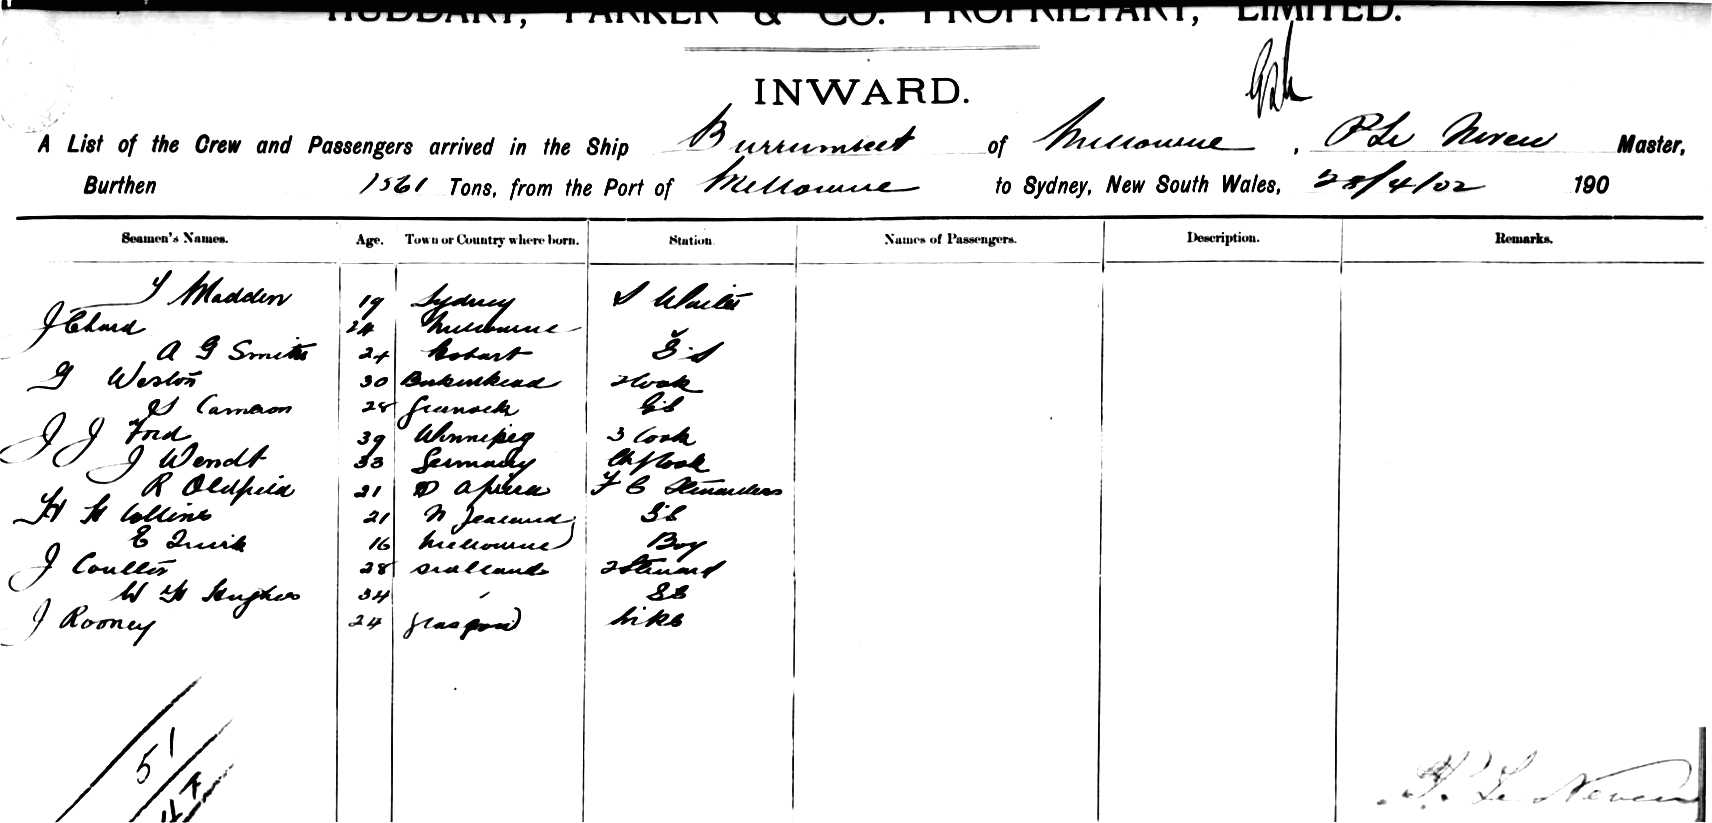 HUDDART, PARKER & CO. PROPRIETARY, LIMITED.
INWARD.
A List of the Crew and Passengers arrived in the Ship Burrumbeet of Melbourne, P Le Neveu Master,
Burthen 1561 Tons, from the Port of Melbourne to Sydney, New South Wales, 28/4/02 190
Seamen's Names. Age. Town or Country where born. Station Names of Passengers. Description. Remarks.
T Madden 19 Sydney S Waiter
J Chard 24 Melbourne
A G Smith 24 Hobart
G Weston 30 Birkenhead 2 Cook
J S Cameron 28 Greenock
J J Ford 39 Winnipeg 3 Cook
J Wendt 33 Germany Ch Cook
R Oldfield 21 Africa F C Stewardess
H H Collins 21 N Zealand
E Quirk 16 Melbourne Boy
J Coulter 28 Scotland 2 Steward
W H Hughes 34 "
J Rooney 24 Glasgow
51
P. Le Neveu